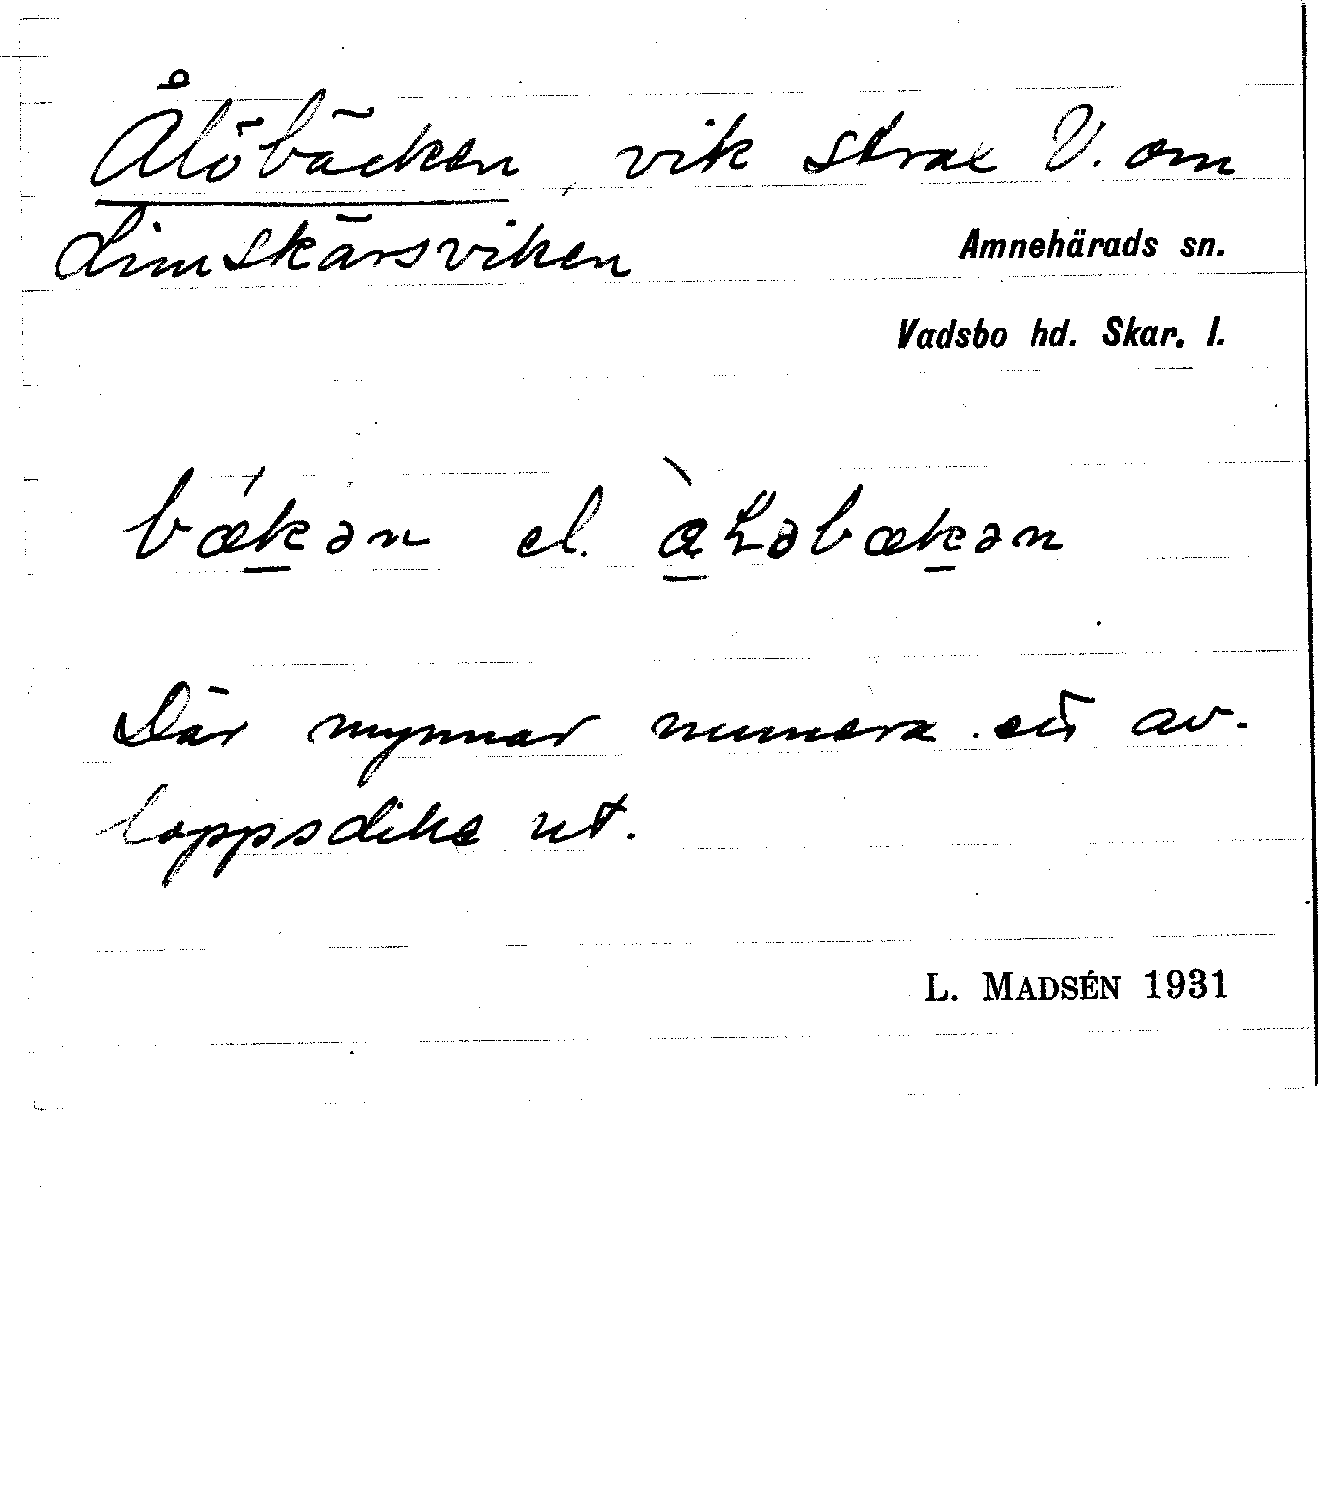 Ålöbäcken, vik strax V. om
Limskärsviken
Amnehärads sn.
Vadsbo hd. Skar. l.
bækən el. àLəbækən
Där mynnar numera ett av-
loppsdike ut.
L. MADSÉN 1931